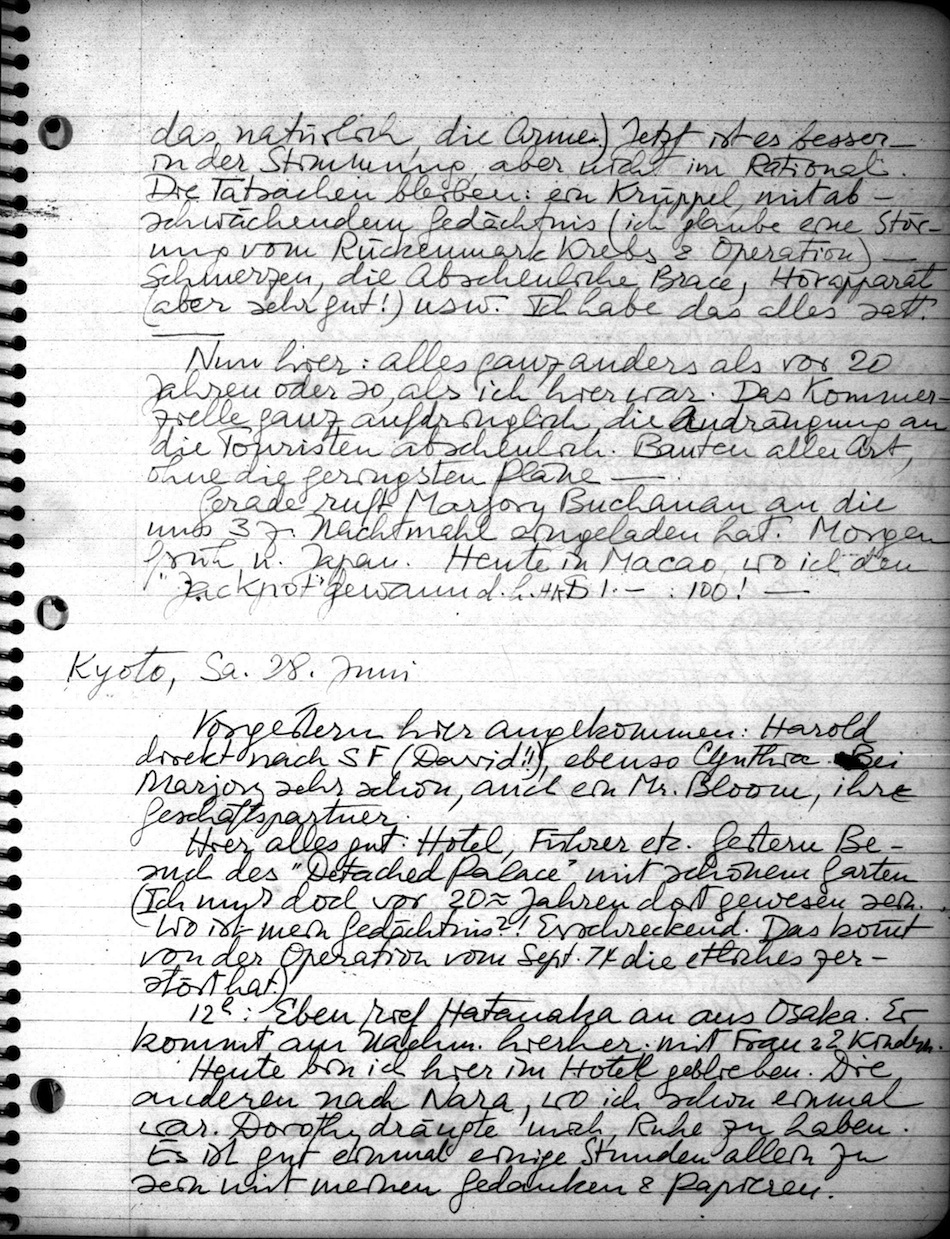 das natürlich, die Arme.) Jetzt ist es besser –
in der Stimmung, aber nicht im Rational.
Die Tatsachen bleiben: ein Krüppel, mit ab-
schwächendem Gedächtnis (ich glaube eine Stör-
ung vom Rückenmark Krebs & Operation) –
Schmerzen, die Abscheuliche Brace, Hörapparat
(aber sehr gut!) usw. Ich habe das alles satt.
Nun hier: alles ganz anders als vor 20
Jahren oder so, als ich hier war. Das Kommer-
zielle ganz aufdringlich, die Andrängung an
die Touristen abscheulich. Bauten aller Art,
ohne die geringsten Pläne —
Gerade ruft Marjory Buchanan an die
uns 3 z. Nachtmahl eingeladen hat. Morgen
früh n. Japan. Heute in Macao, wo ich den
"Jackpot" gewann d.h. HK$ 1.– : 100! —
Kyoto, Sa. 28. Juni
Vorgestern hier angekommen: Harold
direkt nach SF (David!!), ebenso Cynthia. Bei
Marjory sehr schön, auch ein Mr. Bloom, ihre
Geschäftspartner.
Hier alles gut: Hotel, Führer etc. Gestern Be-
such des "Detached Palace" mit schönem Garten
(Ich muß doch vor 20 ≈ Jahren dort gewesen sein.
Wo ist mein Gedächtnis?! Erschreckend. Das kommt
von der Operation vom Sept. 74 die etliches zer-
stört hat.)
12h: Eben rief Hatanaka an aus Osaka. Er
kommt am Nachm. hierher mit Frau & 2 Kindern.
Heute bin ich hier im Hotel geblieben. Die
anderen nach Nara, wo ich schon einmal
war. Dorothy drängte mich Ruhe zu haben.
Es ist gut einmal einige Stunden allein zu
sein mit meinen Gedanken & Papieren.